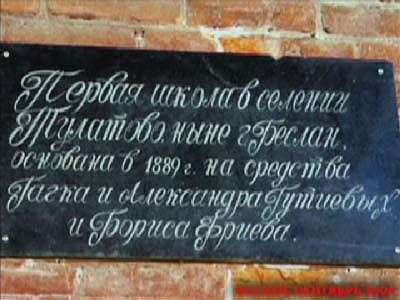 Первая школа в селении
Тулатово, ныне г. Беслан,
основана в 1889 г. на средства
Гагка и Александра Гутиевых
и Бориса Фриева.